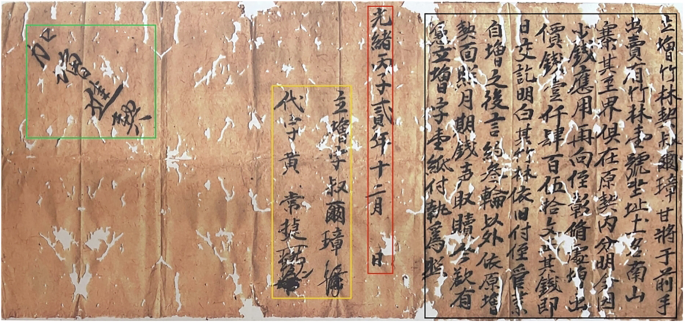 立增竹林契叔爾璋甘將于前手
出賣有竹林壹號坐址土名南山
寨其至界俱在原契内分明今因
少錢應用再向侄 邊增出
價錢壹仟肆百伍拾文 其錢即
日交訖明白其竹林依旧付侄管業
自增之後言約叁輪以外依原增
契面照月期錢 取贖 欲有
憑立增字壹紙付執為照
光緒丙子貳年十二月 日
立增字叔爾璋
代字黄 常
加增 契